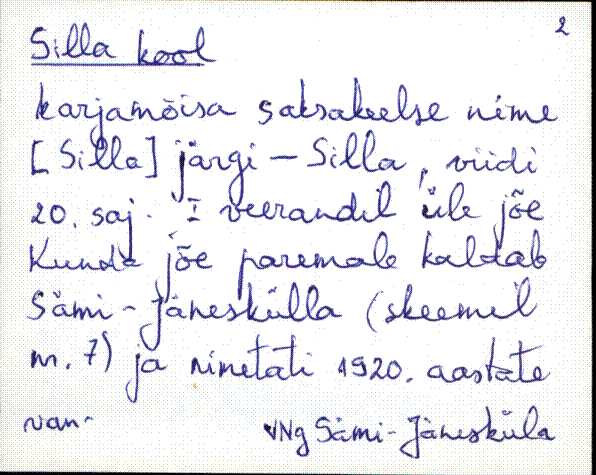 2
Silla kool
karjamõisa saksakeelse nime
[Silla] järgi – Silla, viidi
20. saj. I veerandil üle jõe
Kunda jõe paremale kaldale
Sämi-Jänesküla (skeemil
nr. 7) ja nimetati 1920. aastate
VNg Sämi-Jänesküla